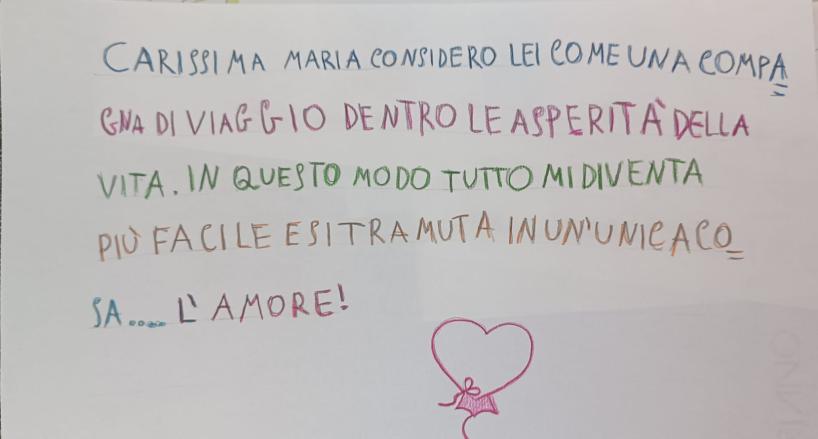 CARISSIMA MARIA CONSIDERO LEI COME UNA COMPA=
GNA DI VIAGGIO DENTRO LE ASPERITÀ DELLA
VITA. IN QUESTO MODO TUTTO MI DIVENTA
PIÙ FACILE E SI TRAMUTA IN UN'UNICA CO=
SA..... L'AMORE!